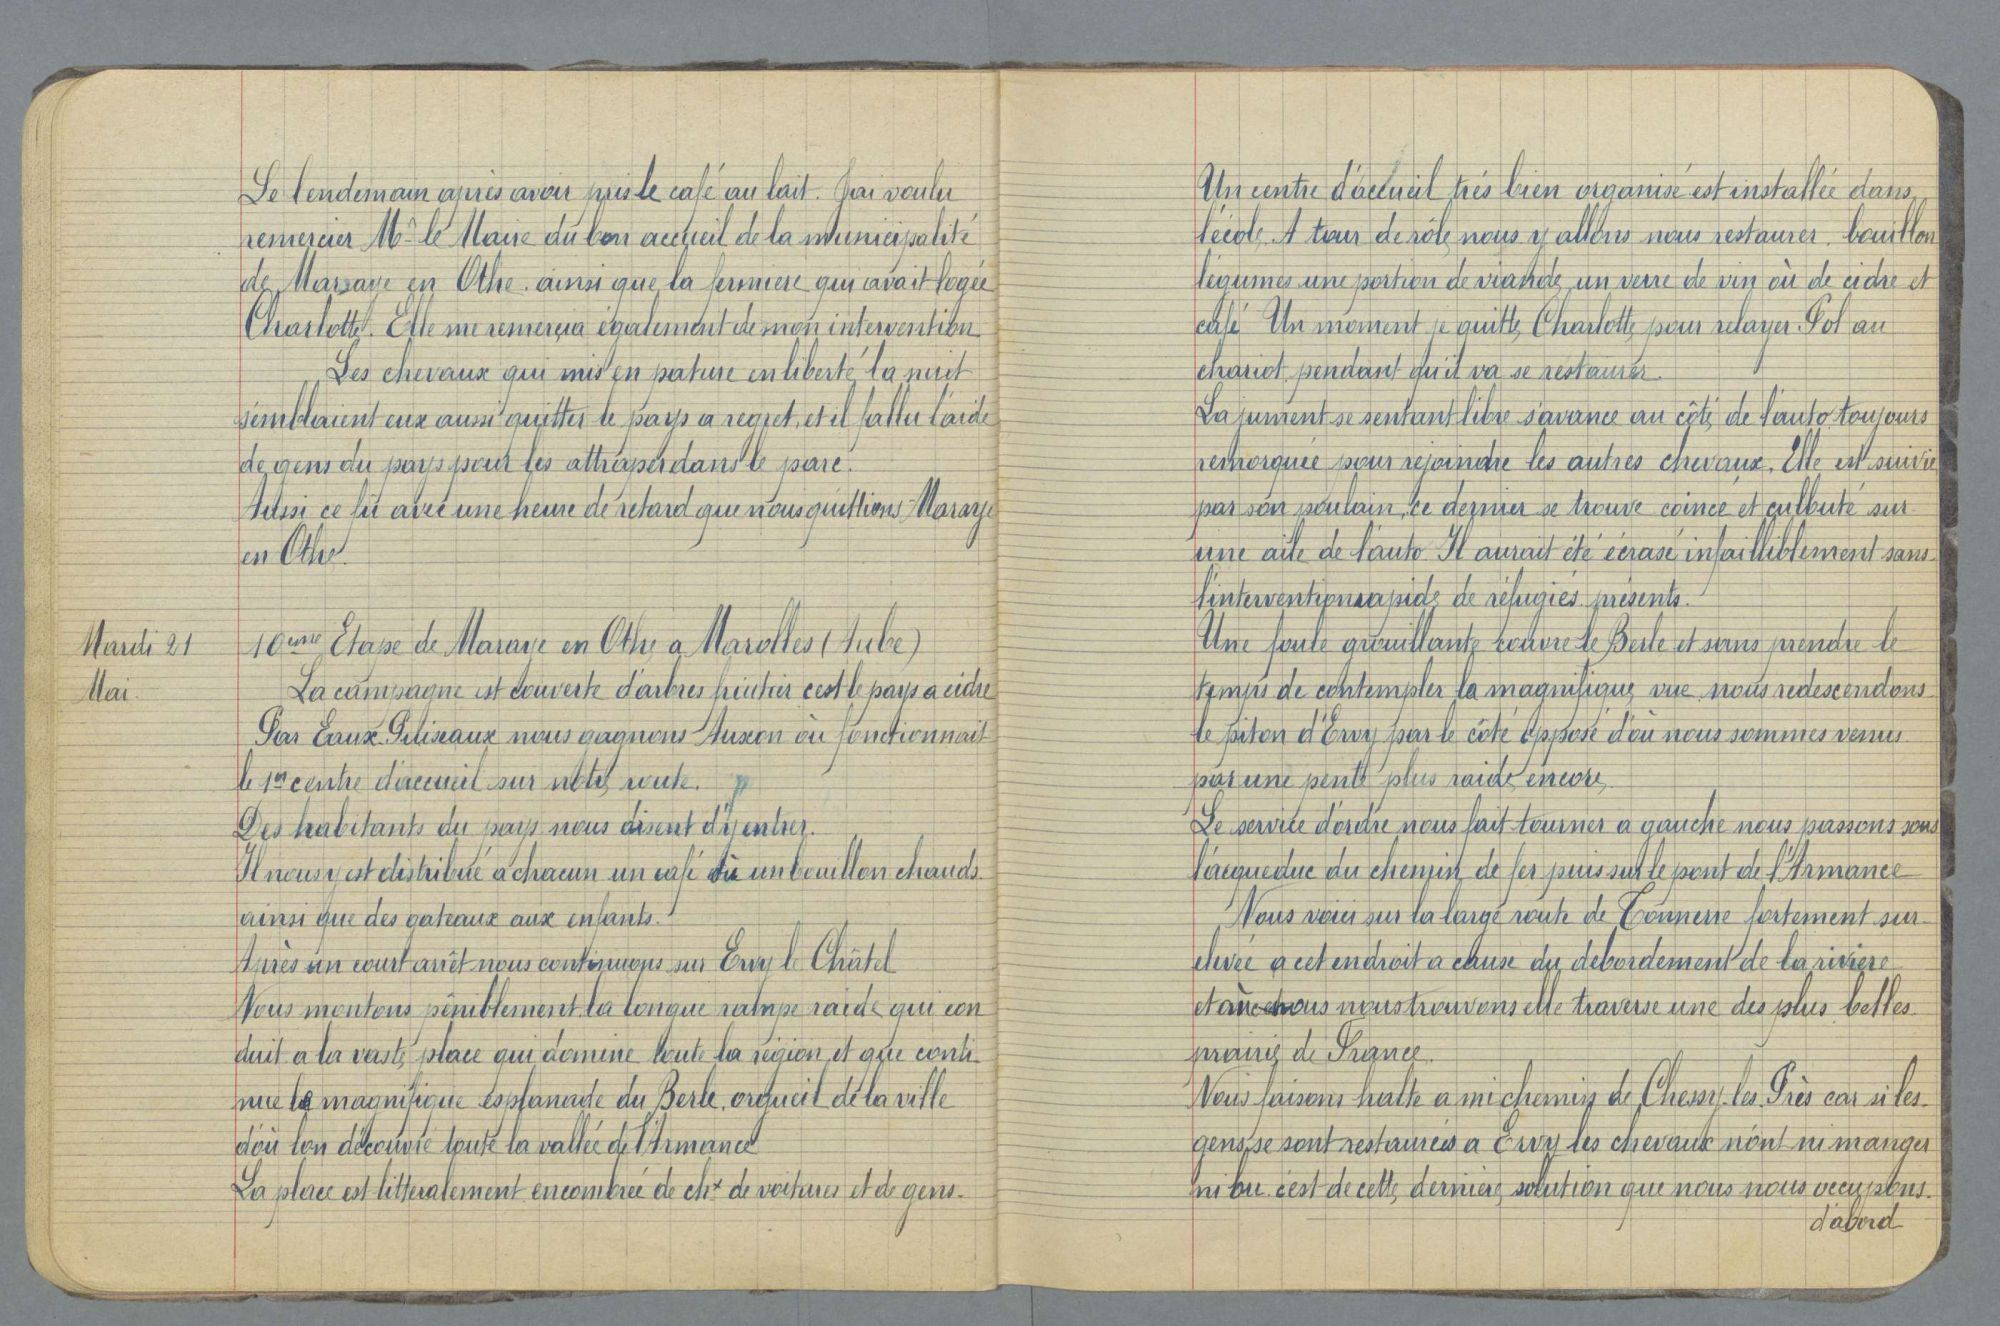 Le lendemain après avoir pris le café au lait. J'ai voulu
remercier Mr le Maire du bon accueil de la municipalité
de Maraye en Othe. ainsi que la fermiere qui avait logée
Charlotte. Elle me remerçia également de mon intervention
Les chevaux qui mis en pature en liberté la nuit
semblaient eux aussi quitter le pays a regret, et il fallu l'aide
de gens du pays pour les attraper dans le parc.
Aussi ce fû avec une heure de retard que nous quittions Maraye
en Othe.
Mardi 21
Mai.
10eme Etape de Maraye en Othe a Marolles (Aube)
La campagne est couverte d'arbres fruitier c'est le pays a cidre
Par Eaux-Puiseaux nous gagnons Auxon où fonctionnait
le 1er centre d'accueil sur notre route.
Des habitants du pays nous disent d'y entrer.
Il nous y est distribué a chacun un café où un bouillon chauds.
ainsi que des gateaux aux enfants.
Après un court arrêt nous continuons sur Ervy le Châtel
Nous montons péniblement la longue rampe raide qui con
duit a la vaste place qui domine toute la région et que conti-
nue la magnifique esplanade du Berle, orgueil de la ville
d'où l'on découvre toute la vallée de l'Armance
La place est litteralement encombrée de chx de voitures et de gens.
Un centre d'accueil très bien organisé est installée dans
l'école. A tour de rôle nous y allons nous restaurer. bouillon
légumes une portion de viande un verre de vin où de cidre et
café Un moment je quitte Charlotte pour relayer Pol au
chariot pendant qu'il va se restaurer.
La jument se sentant libre s'avance au côté de l'auto toujours
remorquée pour rejoindre les autres chevaux. Elle est suivie
par son poulain, ce dernier se trouve coincé et culbuté sur
une aile de l'auto. Il aurait été écrasé infailliblement sans
l'intervention rapide de réfugiés présents.
Une foule grouillante couvre le Berle et sans prendre le
temps de contempler la magnifique vue nous redescendons
le piton d'Ervy par le côté opposé d'où nous sommes venus
par une pente plus raide encore.
Le service d'ordre nous fait tourner a gauche nous passons sous
l'acqueduc du chemin de fer puis sur le pont de l'Armance
Nous voici sur la large route de Tonnerre fortement sur-
elevée a cet endroit a cause du debordement de la riviere
et nous nous trouvons elle traverse une des plus belles
prairie de France.
Nous faisons halte a mi chemin de Chessy-les-Près car si les
gens se sont restaurés a Ervy les chevaux n'ont ni manger
ni bu. c'est de cette derniere solution que nous nous occupons.
d'abord